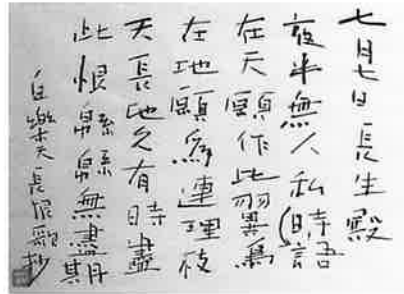 七月七日長生殿
夜半無人私時語
在天願作比翼鳥
在地願為連理枝
天長地久有時盡
此恨緜緜無盡期
白樂天長恨歌抄